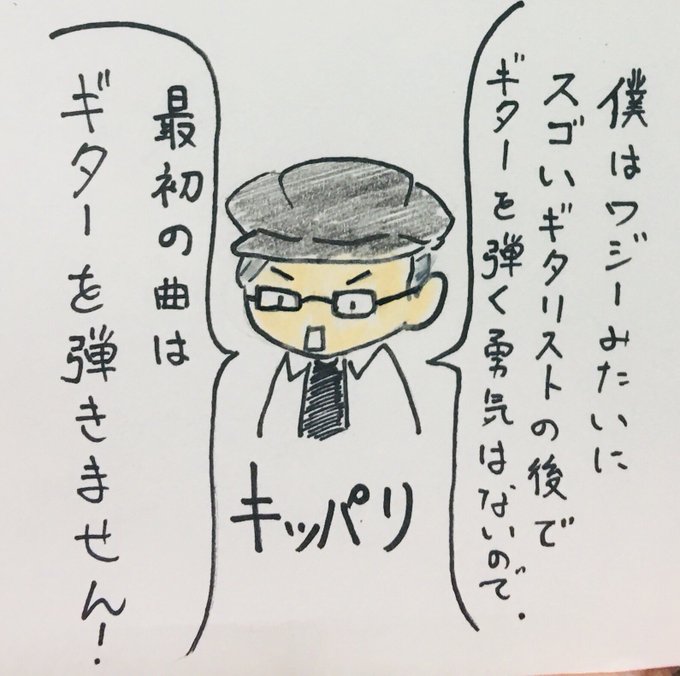 僕はワジーみたいに
スゴいギタリストの後で
ギターを弾く勇気はないので.
キッパリ
最初の曲は
ギターを弾きません!